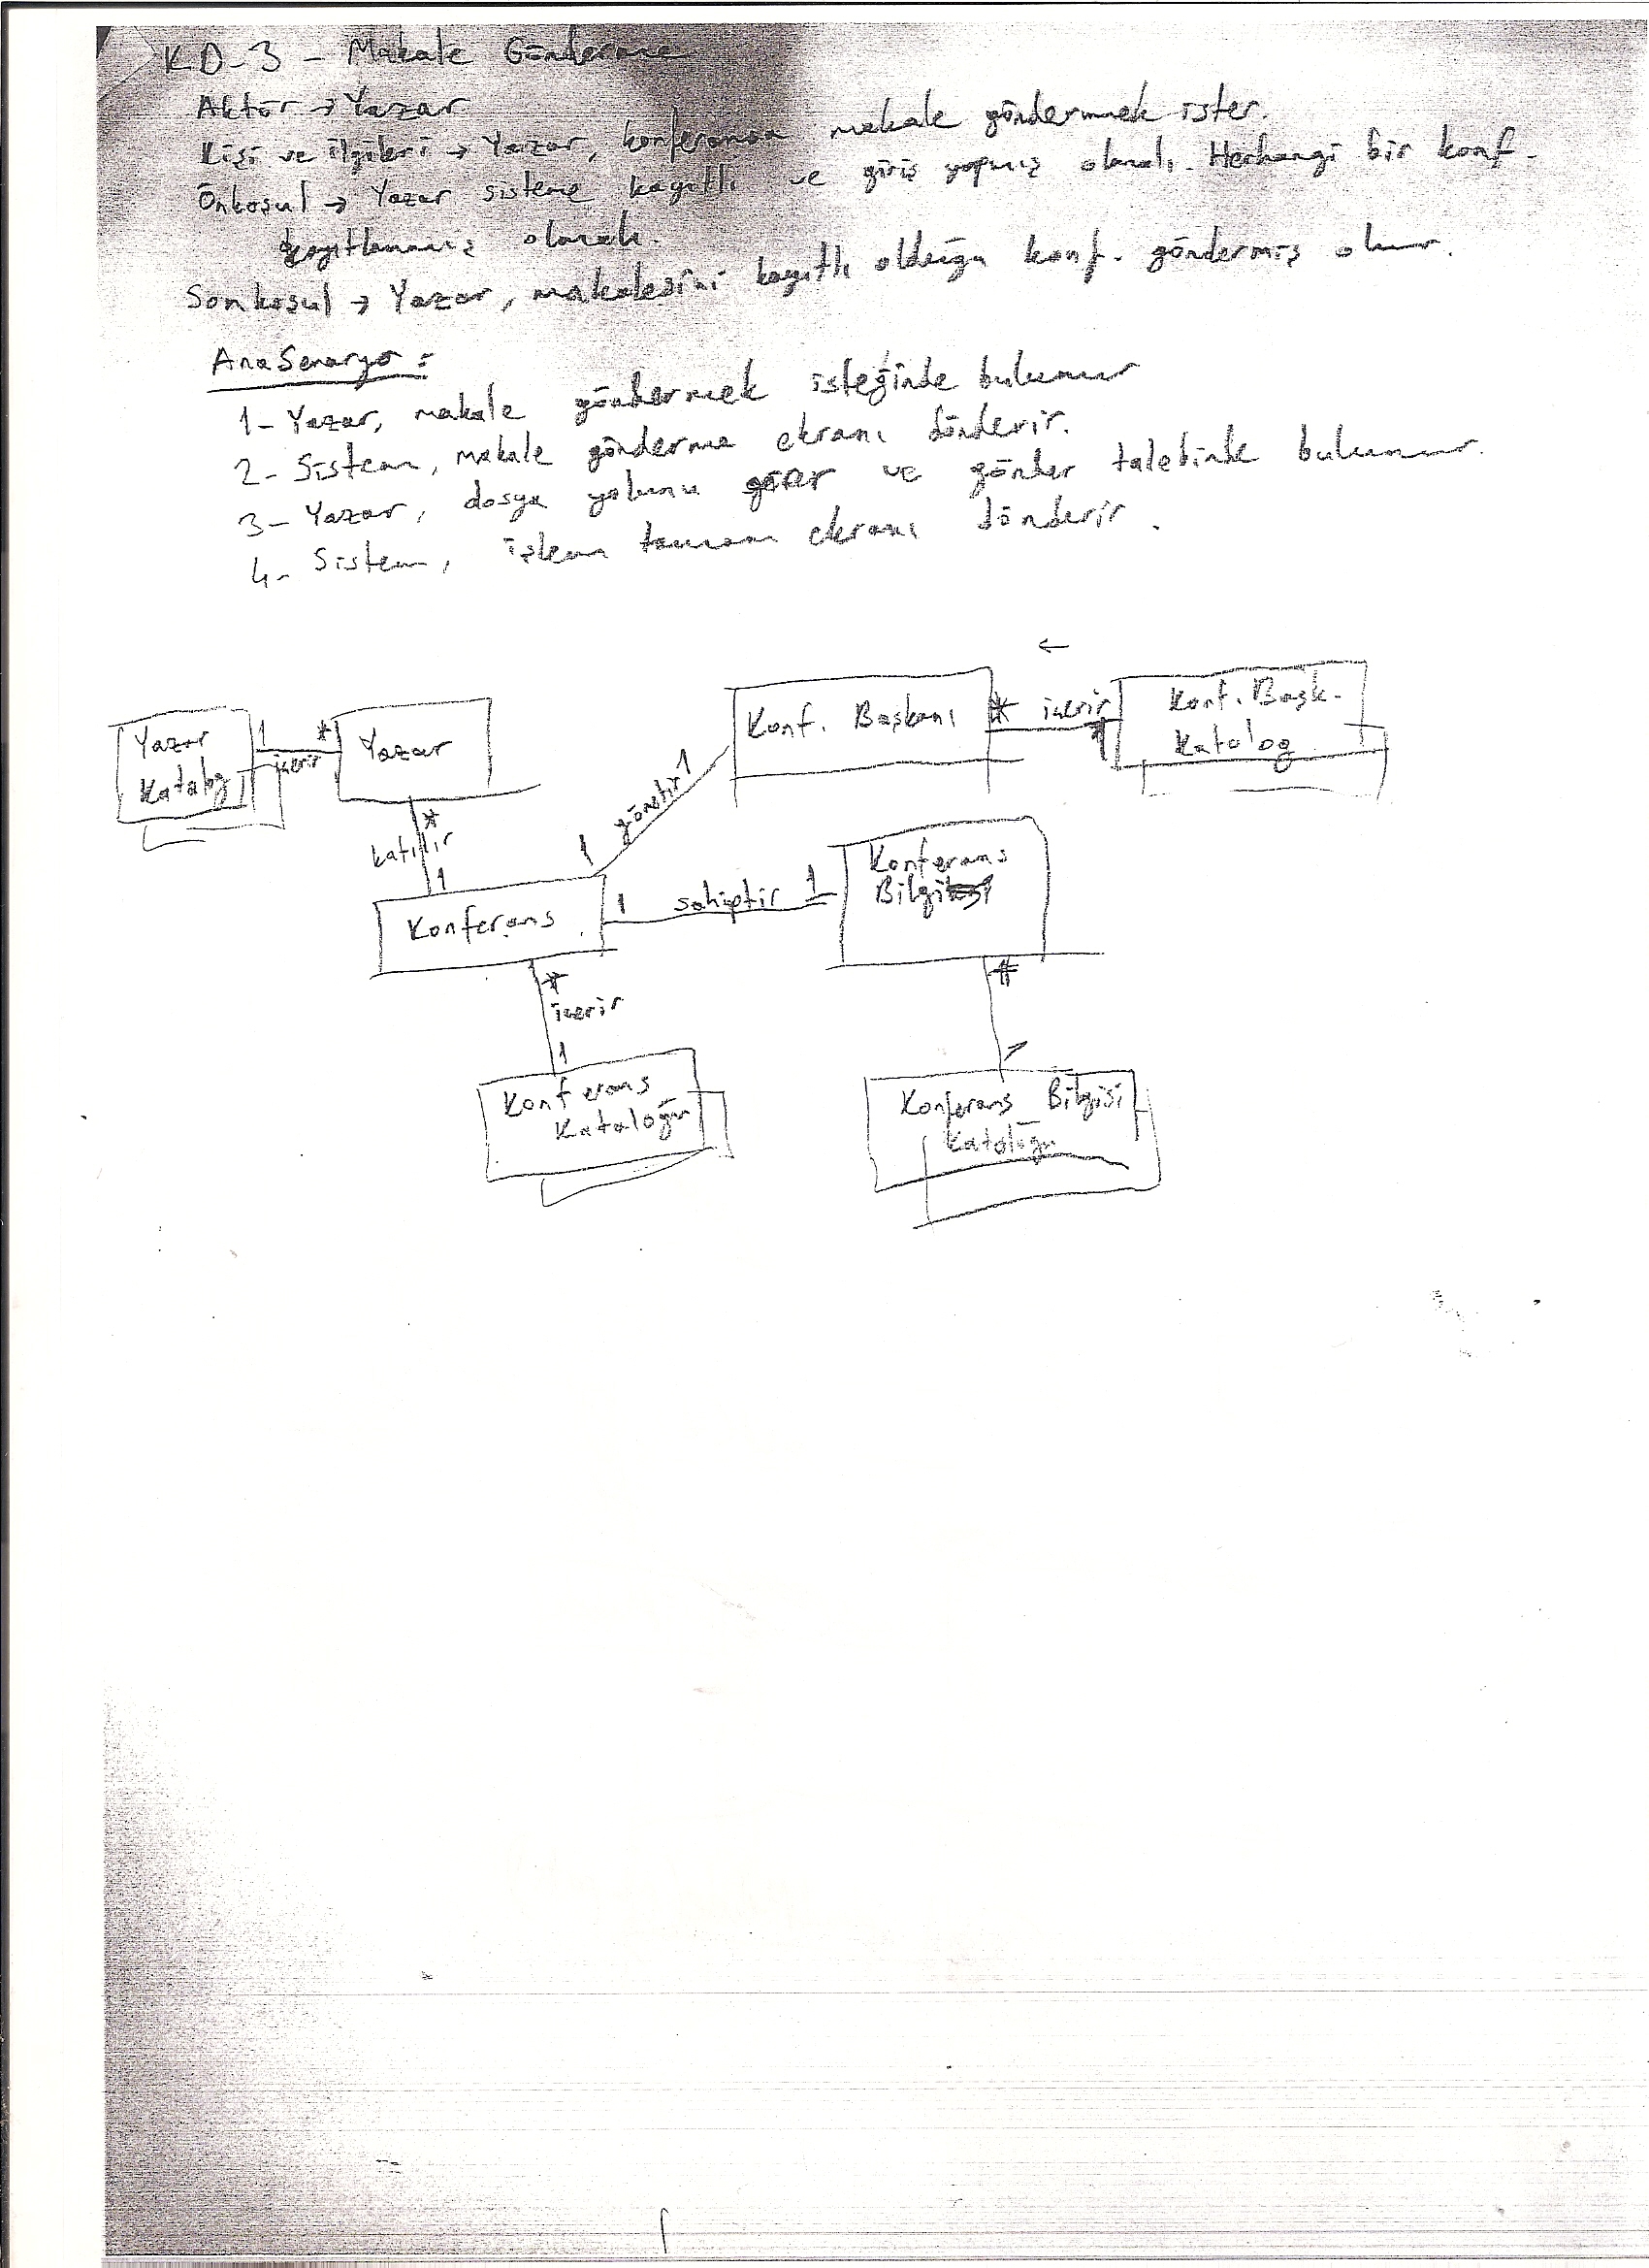 KD-3 - Makale Gönderme
Aktör → Yazar
Kişi ve ilgileri → Yazar, konferansa makale göndermek ister.
Önkoşul → Yazar sisteme kayıtlı ve giriş yapmış olmalı. Herhangi bir konf.
kayıtlanmış olmalı.
Sonkoşul → Yazar, makalesini kayıtlı olduğu konf. göndermiş olur.
Ana Senaryo :
1- Yazar, makale göndermek isteğinde bulunur
2- Sistem, makale gönderme ekranı dönderir.
3- Yazar, dosya yolunu girer ve gönder talebinde bulunur.
4- Sistem, işlem tamam ekranı dönderir.
←
Yazar
Katalog
1 * içerir
Yazar
Konf. Başkanı
* içerir 1
Konf. Başk.
Katalog
* katılır 1
1 yönetir 1
Konferans
1 sahiptir 1
Konferans
Bilgi
*
içerir
1
Konferans
Kataloğu
*
1
Konferans Bilgisi
Kataloğu